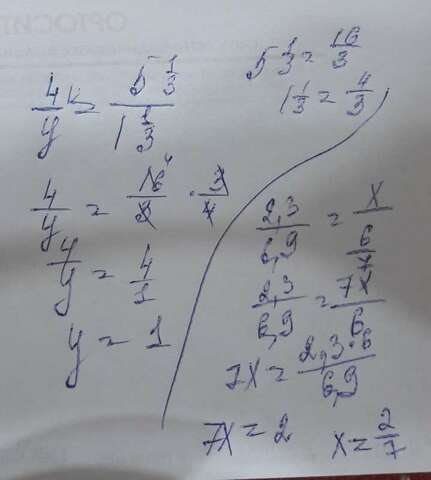 ОРТОСИ
4/y = 5 1/3 / 1 1/3
5 1/3 = 16/3
1 1/3 = 4/3
4/y = 16/3 · 3/4
4/y = 4/1
y = 1
2,3/6,9 = x / 6/7
2,3/6,9 = 7x/6
7x = 2,3·6/6,9
7x = 2
x = 2/7